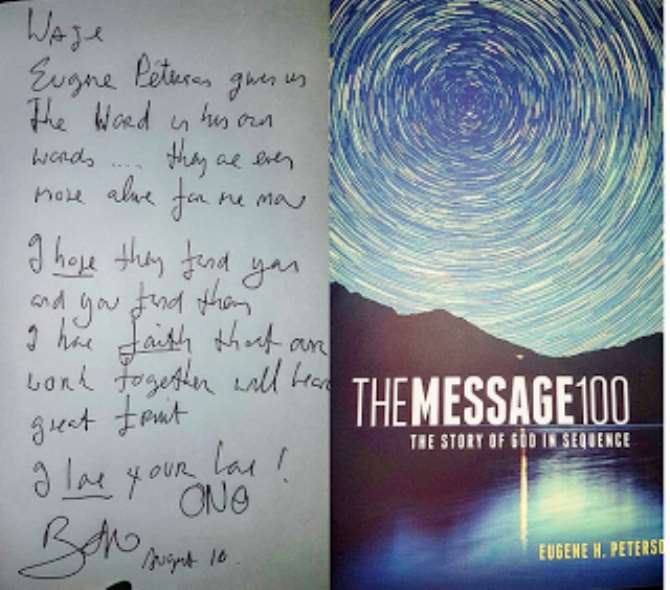 WAJE
Eugene Peterson gives us
the Word in his own
words .... they are even
more alive for me now
I hope they find you
and you find them
I have faith that our
work together will bear
great fruit
I love your love!
ONE
August 10.
THEMESSAGE100
THE STORY OF GOD IN SEQUENCE
EUGENE H. PETERSO